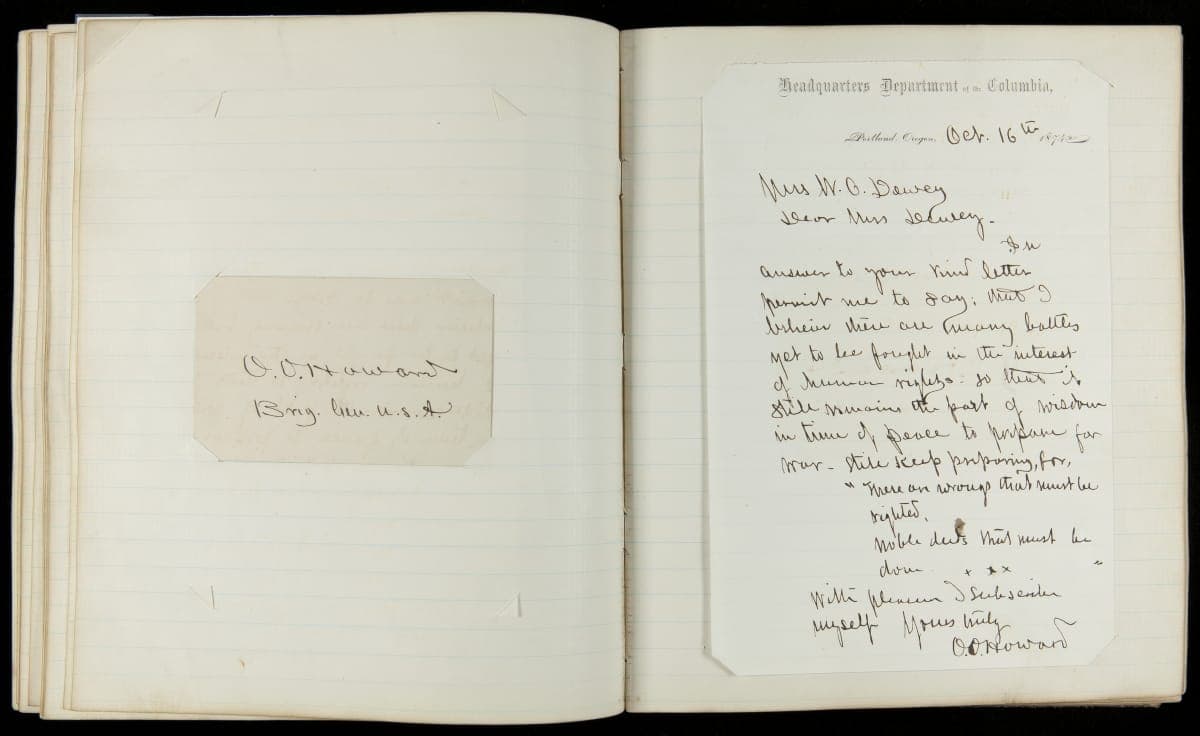 O. O. Howard
Brig. Gen. U.S.A.
Headquarters Department of the Columbia,
Portland, Oregon, Oct. 16th 187
Mrs W. O. Dewey
Dear Mrs Dewey.
In
answer to your kind letter
permit me to say; that I
believe there are many battles
yet to be fought in the interest
of human rights - so that it
still remains the part of wisdom
in time of peace to prepare for
war - still keep preparing, for,
"There are wrongs that must be
righted,
Noble deeds that must be
done x x x "
With pleasure I subscribe
myself Yours truly
O. O. Howard